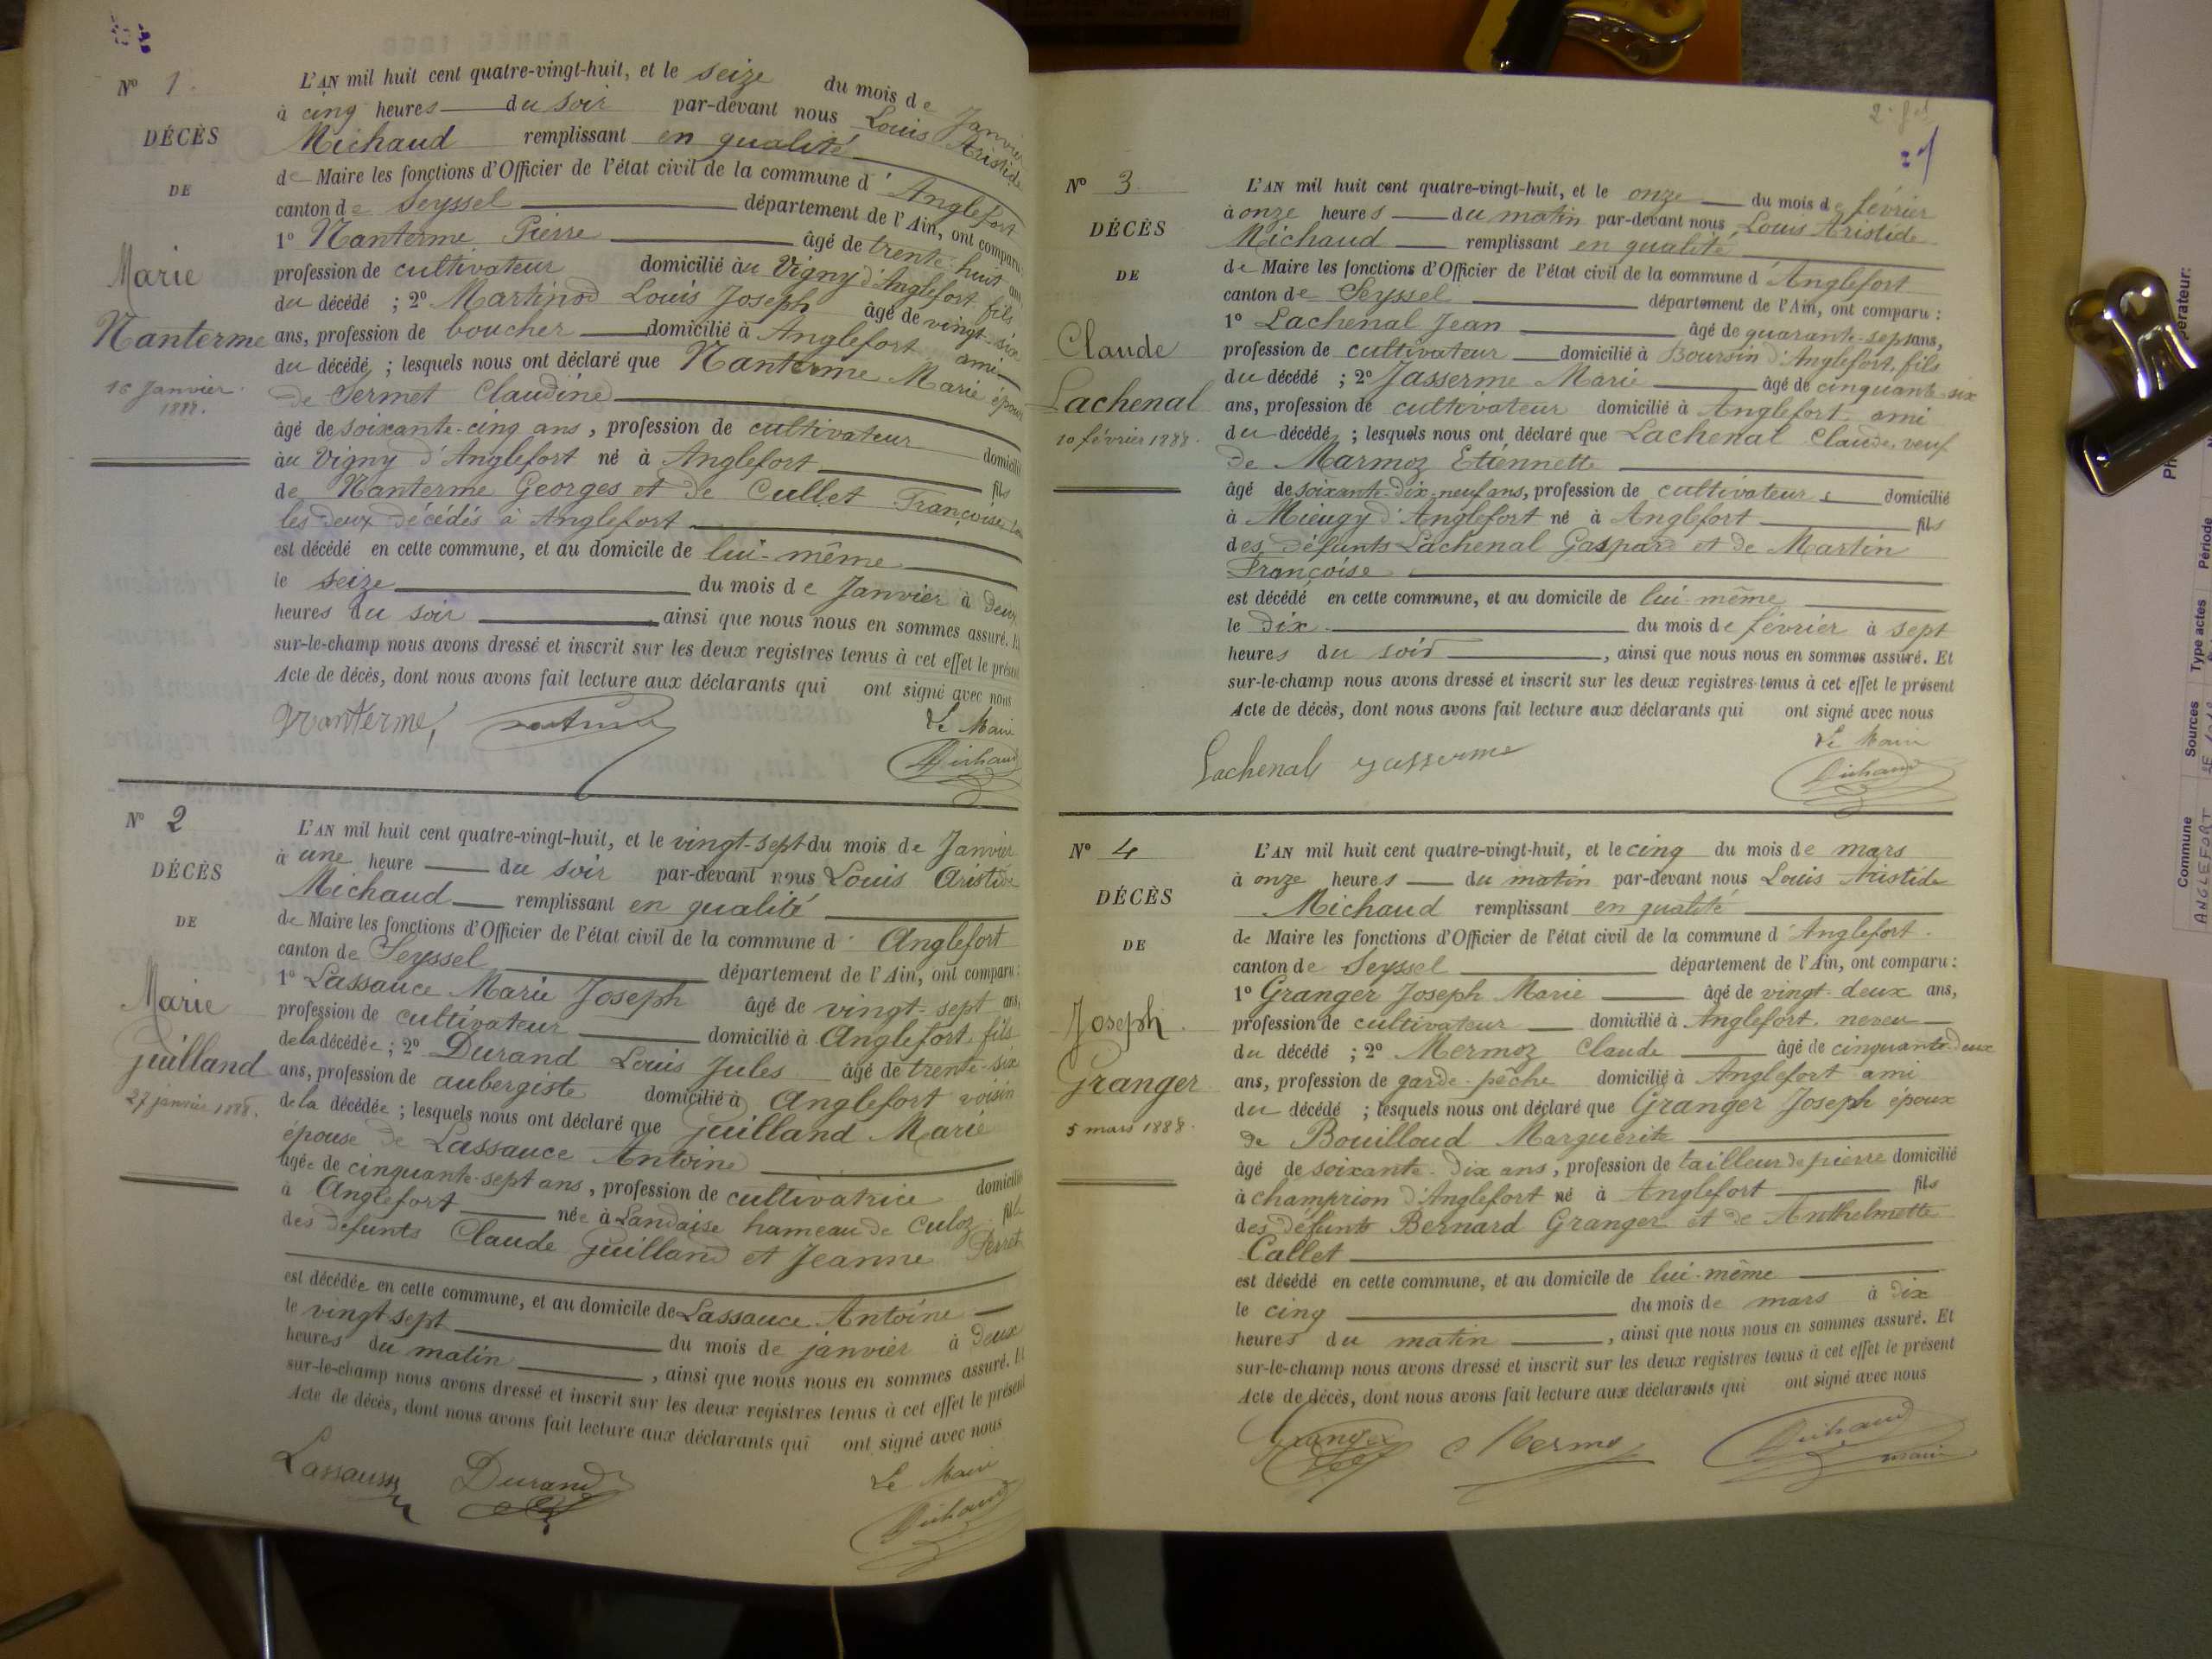 N° 1.
DÉCÈS
DE
Marie
Nanterme
16 Janvier
1888.
L'AN mil huit cent quatre-vingt-huit, et le seize du mois de Janvier
à cinq heures du soir par-devant nous Louis Aristide
Michaud remplissant en qualité
de Maire les fonctions d'Officier de l'état civil de la commune d'Anglefort
canton de Seyssel département de l'Ain, ont comparu:
1° Nanterme Pierre âgé de trente-huit ans
profession de cultivateur domicilié au Vigny d'Anglefort fils
du décédé ; 2° Martinod Louis Joseph âgé de vingt-six
ans, profession de boucher domicilié à Anglefort ami
du décédé ; lesquels nous ont déclaré que Nanterme Marie époux
de Sermet Claudine
âgé de soixante-cinq ans, profession de cultivateur domicilié
au Vigny d'Anglefort né à Anglefort fils
de Nanterme Georges et de Cullet Françoise
les deux décédés à Anglefort
est décédé en cette commune, et au domicile de lui-même
le seize du mois de Janvier à deux
heures du soir ainsi que nous nous en sommes assuré. Et
sur-le-champ nous avons dressé et inscrit sur les deux registres tenus à cet effet le présent
Acte de décès, dont nous avons fait lecture aux déclarants qui ont signé avec nous
Nanterme
Le Maire
Michaud
N° 2
DÉCÈS
DE
Marie
Guilland
27 janvier 1888.
L'AN mil huit cent quatre-vingt-huit, et le vingt-sept du mois de Janvier
à une heure du soir par-devant nous Louis Aristide
Michaud remplissant en qualité
de Maire les fonctions d'Officier de l'état civil de la commune d'Anglefort
canton de Seyssel département de l'Ain, ont comparu:
1° Lassauce Marie Joseph âgé de vingt-sept ans,
profession de cultivateur domicilié à Anglefort fils
de la décédée ; 2° Durand Louis Jules âgé de trente-six
ans, profession de aubergiste domicilié à Anglefort voisin
de la décédée ; lesquels nous ont déclaré que Guilland Marie
épouse de Lassauce Antoine
âgée de cinquante-sept ans, profession de cultivatrice domicilié
à Anglefort née à Landaise hameau de Culoz fille
des défunts Claude Guilland et Jeanne Perret
est décédée en cette commune, et au domicile de Lassauce Antoine
le vingt-sept du mois de janvier à deux
heures du matin, ainsi que nous nous en sommes assuré. Et
sur-le-champ nous avons dressé et inscrit sur les deux registres tenus à cet effet le présent
Acte de décès, dont nous avons fait lecture aux déclarants qui ont signé avec nous
Durand
Le Maire
Michaud
N° 3
DÉCÈS
DE
Claude
Lachenal
10 février 1888.
L'AN mil huit cent quatre-vingt-huit, et le onze du mois de février
à onze heures du matin par-devant nous Louis Aristide
Michaud remplissant en qualité
de Maire les fonctions d'Officier de l'état civil de la commune d'Anglefort
canton de Seyssel département de l'Ain, ont comparu :
1° Lachenal Jean âgé de quarante-sept ans,
profession de cultivateur domicilié à Boursin d'Anglefort, fils
du décédé ; 2° Jasserme Marie âgé de cinquante-six
ans, profession de cultivateur domicilié à Anglefort ami
du décédé ; lesquels nous ont déclaré que Lachenal Claude, veuf
de Marmoz Etiennette
âgé de soixante-dix-neuf ans, profession de cultivateur domicilié
à Mieugy d'Anglefort né à Anglefort fils
des défunts Lachenal Gaspard et de Martin
Françoise
est décédé en cette commune, et au domicile de lui-même
le dix du mois de février à sept
heures du soir, ainsi que nous nous en sommes assuré. Et
sur-le-champ nous avons dressé et inscrit sur les deux registres tenus à cet effet le présent
Acte de décès, dont nous avons fait lecture aux déclarants qui ont signé avec nous
Lachenal Jasserme
Le Maire
Michaud
N° 4
DÉCÈS
DE
Joseph
Granger
5 mars 1888.
L'AN mil huit cent quatre-vingt-huit, et le cinq du mois de mars
à onze heures du matin par-devant nous Louis Aristide
Michaud remplissant en qualité
de Maire les fonctions d'Officier de l'état civil de la commune d'Anglefort
canton de Seyssel département de l'Ain, ont comparu :
1° Granger Joseph Marie âgé de vingt-deux ans,
profession de cultivateur domicilié à Anglefort neveu
du décédé ; 2° Mermoz Claude âgé de cinquante-deux
ans, profession de garde-pêche domicilié à Anglefort ami
du décédé ; lesquels nous ont déclaré que Granger Joseph époux
de Bouilloud Marguerite
âgé de soixante-dix ans, profession de tailleur de pierre domicilié
à Champrion d'Anglefort né à Anglefort fils
des défunts Bernard Granger et de Anthelmette
Callet
est décédé en cette commune, et au domicile de lui-même
le cinq du mois de mars à dix
heures du matin, ainsi que nous nous en sommes assuré. Et
sur-le-champ nous avons dressé et inscrit sur les deux registres tenus à cet effet le présent
Acte de décès, dont nous avons fait lecture aux déclarants qui ont signé avec nous
Granger
Michaud
maire
Commune
Sources
Type actes
Période
ANGLEFORT